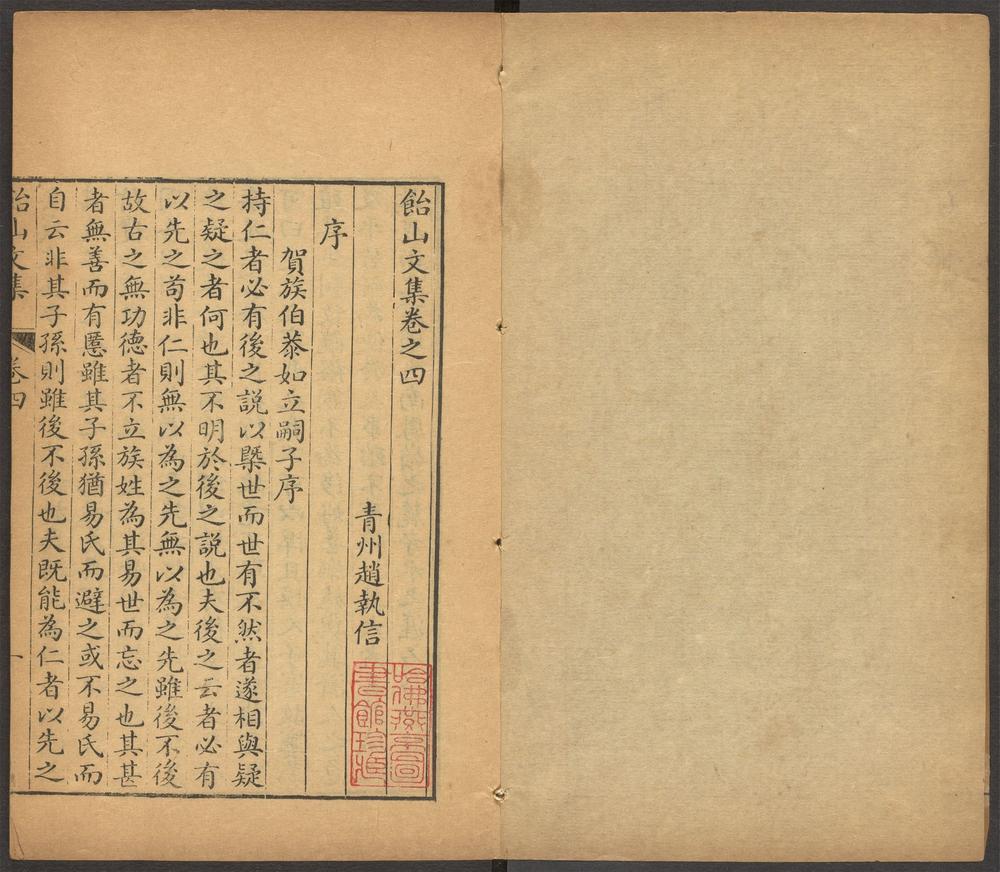 飴山文集卷之四
青州趙執信
序
賀族伯恭如立嗣子序
持仁者必有後之説以槩世而世有不然者遂相與疑
之疑之者何也其不明於後之説也夫後之云者必有
以先之苟非仁則無以為之先無以為之先雖後不後
故古之無功德者不立族姓為其易世而忘之也其甚
者無善而有慝雖其子孫猶易氏而避之或不易氏而
自云非其子孫則雖後不後也夫既能為仁者以先之
飴山文集
卷四
一
哈佛燕京圖
書館珍藏